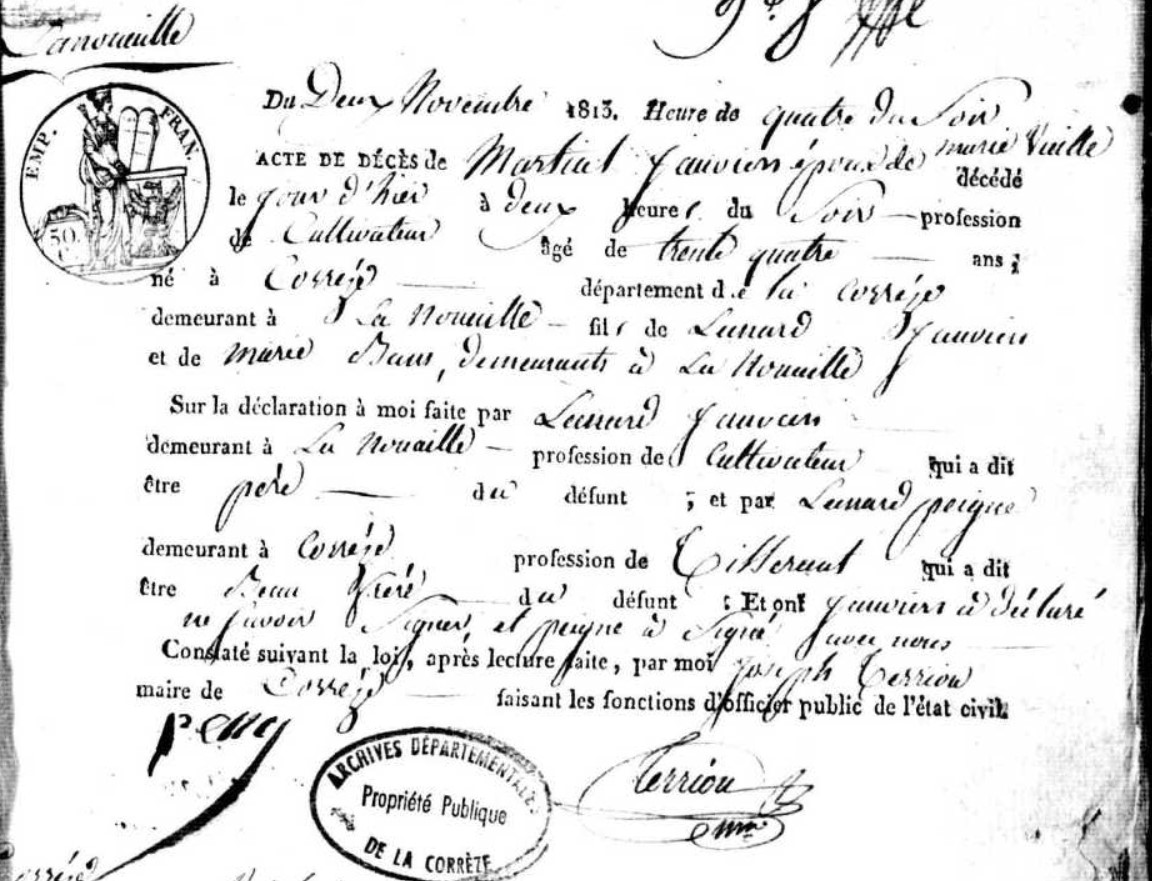 Lanoueille
EMP. FRAN.
50
C.
Du Deux Novembre 1813. Heure de quatre du Soir
ACTE DE DÉCÈS de Martial Janvien époux de marie Vieille décédé
le jour d'hier à deux heures du Soir profession
de Cultivateur âgé de trente quatre ans ;
né à Corrèze département de la Corrèze
demeurant à La Noueille fils de Lenard Janvien
et de marie Bans, demeurants à La Nouaille
Sur la déclaration à moi faite par Lenard Janvien
demeurant à La Nouaille profession de Cultivateur qui a dit
être père du défunt ; et par Lenard peigne
demeurant à Corrèze profession de Tisserant qui a dit
être Beau frère du défunt ; Et ont Janvien à déclaré
ne savoir Signer et peigne à Signé avec nous
Constaté suivant la loi, après lecture faite, par moi Joseph Terriou
maire de Corrèze faisant les fonctions d'officier public de l'état civil.
Terriou
ARCHIVES DÉPARTEMENTALES
Propriété Publique
DE LA CORRÈZE